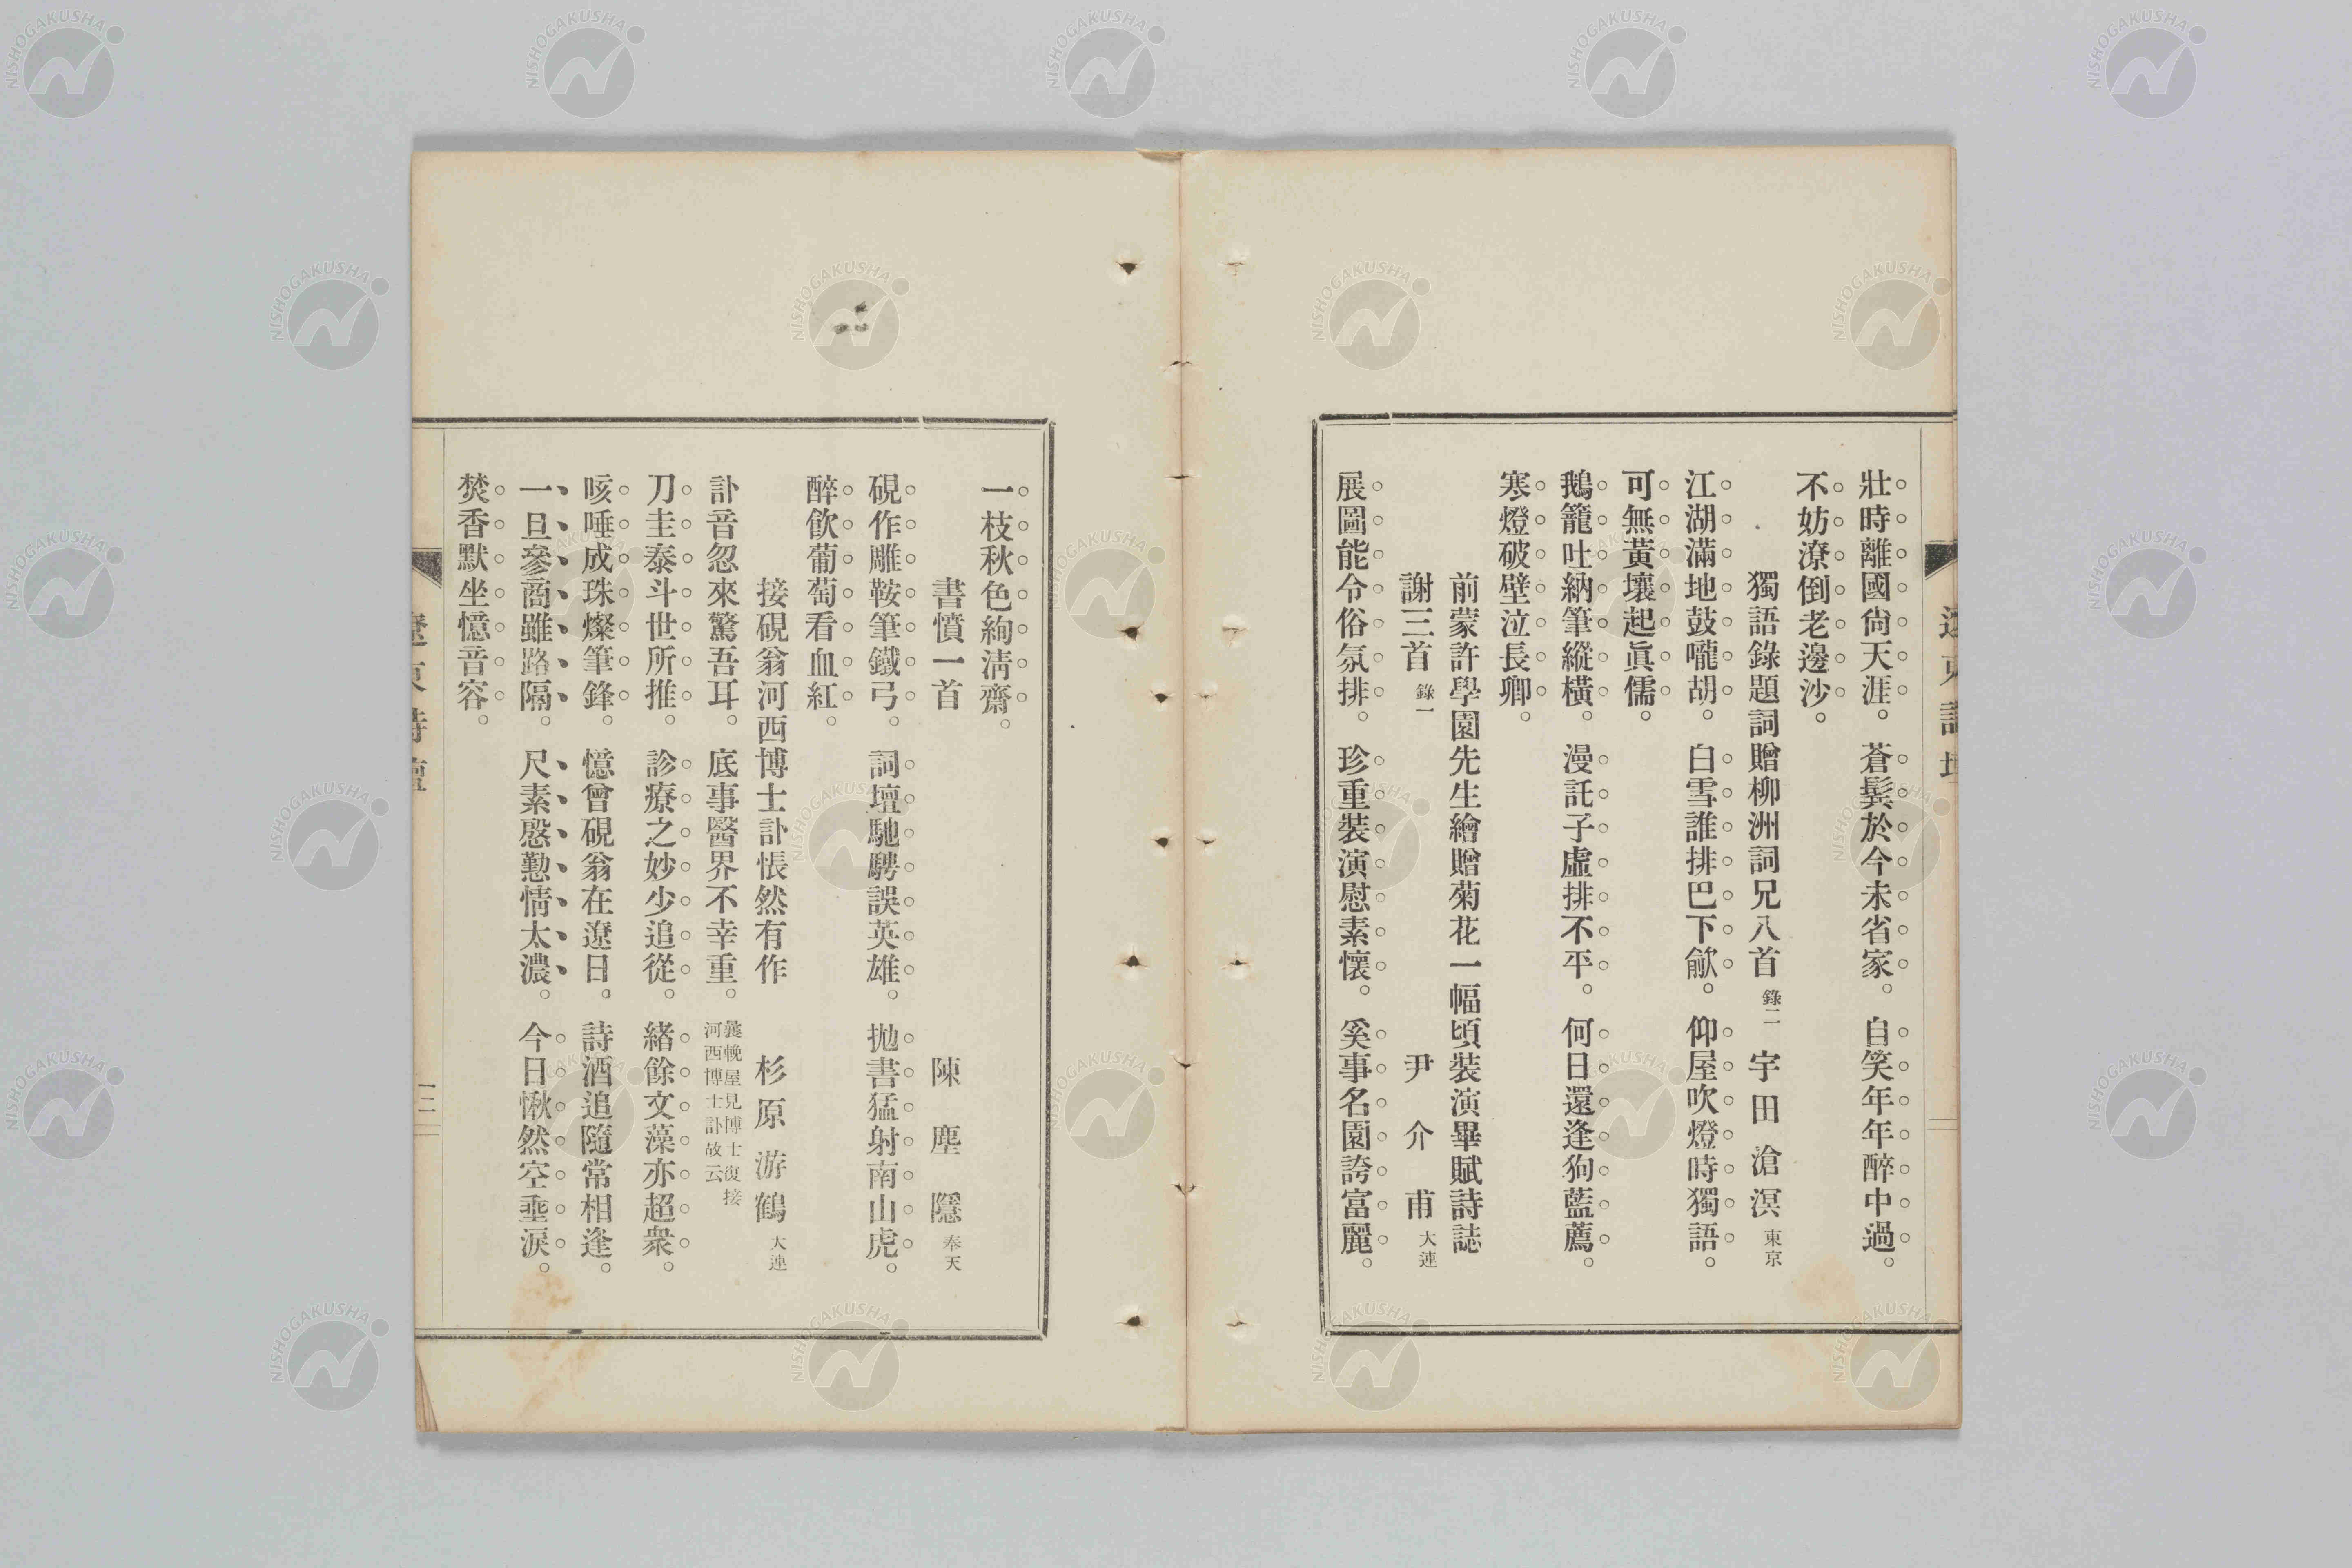 壯時離國尙天涯。蒼鬓於今未省家。自笑年年醉中過。
不妨潦倒老邊沙。
獨語錄題詞贈柳洲詞兄八首 錄二 宇田滄溟 東京
江湖滿地鼓嚨胡。白雪誰排巴下歈。仰屋吹燈時獨語。
可無黃壤起眞儒。
鵝籠吐納筆縱橫。漫託子虛排不平。何日還逢狗藍薦。
寒燈破壁泣長卿。
前蒙許學園先生繪贈菊花一幅頃裝演畢賦詩誌
謝三首 錄一 尹介甫 大連
展圖能令俗氛排。珍重裝演慰素懷。奚事名園誇富麗。
一枝秋色絢淸齋。
書憤一首 陳塵隱 奉天
硯作雕鞍筆鐵弓。詞壇馳騁誤英雄。抛書猛射南山虎。
醉飮葡萄看血紅。
接硯翁河西博士訃悵然有作 杉原游鶴 大連
訃音忽來驚吾耳。底事醫界不幸重。曩輓屋見博士復接
河西博士訃故云
刀圭泰斗世所推。診療之妙少追從。緖餘文藻亦超衆。
咳唾成珠燦筆鋒。憶曾硯翁在遼日。詩酒追隨常相逢。
一旦參商雖路隔。尺素慇懃情太濃。今日愀然空垂淚。
焚香默坐憶音容。
遼東詩壇
一二
NISHOGAKUSHA